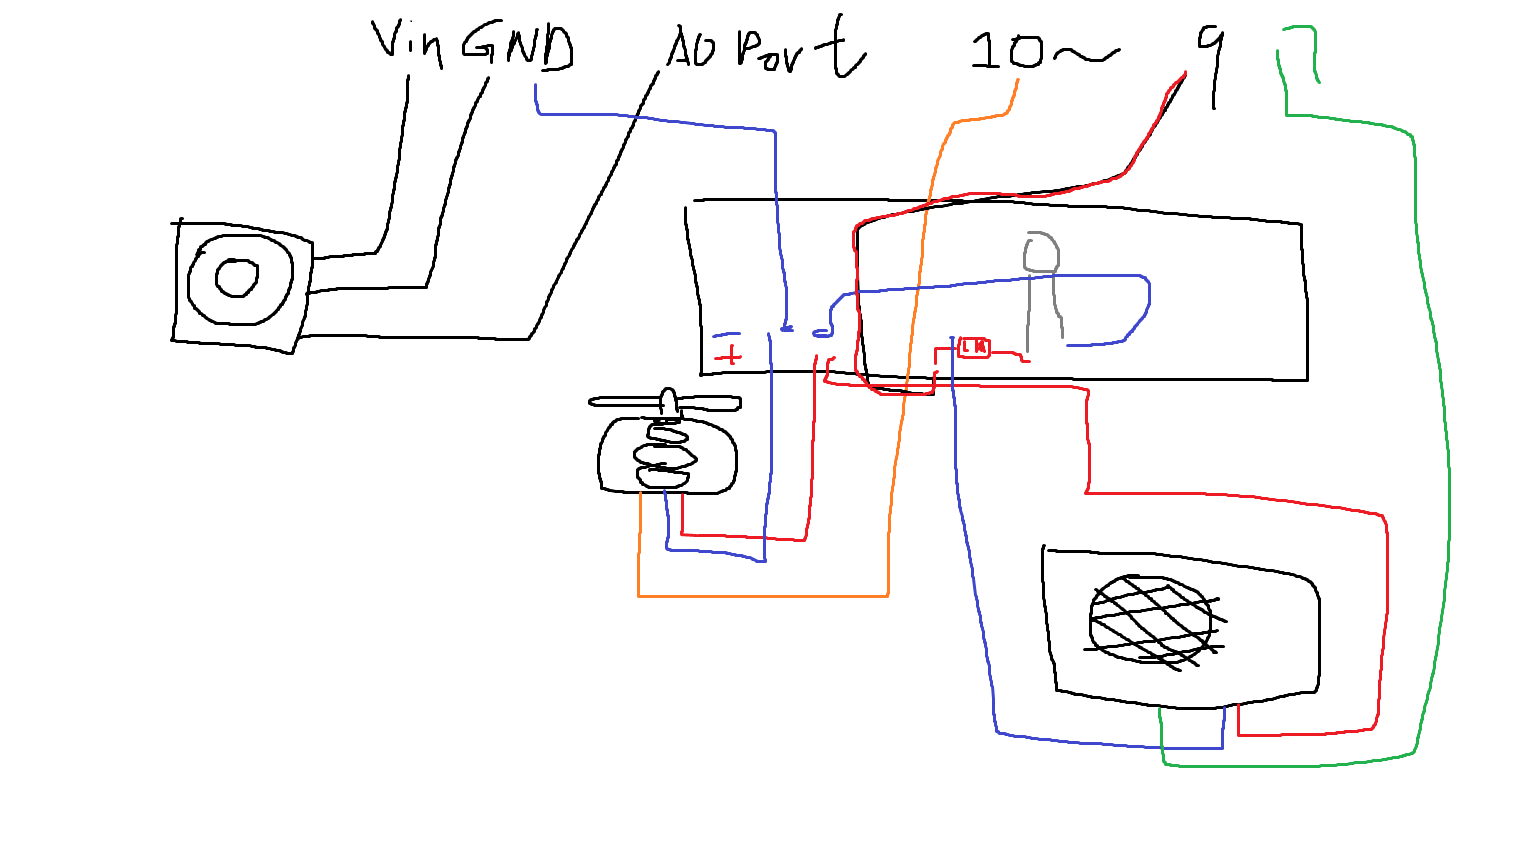 Vin GND A0 Port 10~ 9 7
- 
+
1K